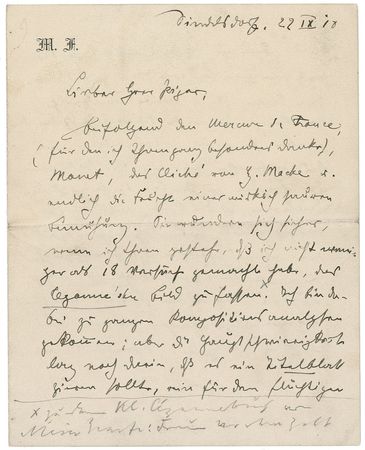 Sindelsdorf, 22 IX 10
M. F.
Lieber Herr Piper,
beifolgend den Mercure de France,
(für den ich Ihnen ganz besonders danke),
Monet, das Cliché von H. Macke u.
endlich die Frucht einer wirklich sauren
Bemühung. Sie wundern sich sicher,
wenn ich Ihnen gestehe, daß ich nicht weni-
ger als 18 Versuche gemacht habe, das
Cézanne'sche Bild zu fassen.x Ich bin da-
bei zu ganzen Kompositionsanalysen
gekommen; aber die Hauptschwierigkeit
lag noch darin, daß es ein Titelblatt
zieren sollte, ein für den flüchtigen
x zu dem Kl. Cézannebuch von
Meier Graefe: Frau vor dem Zelt